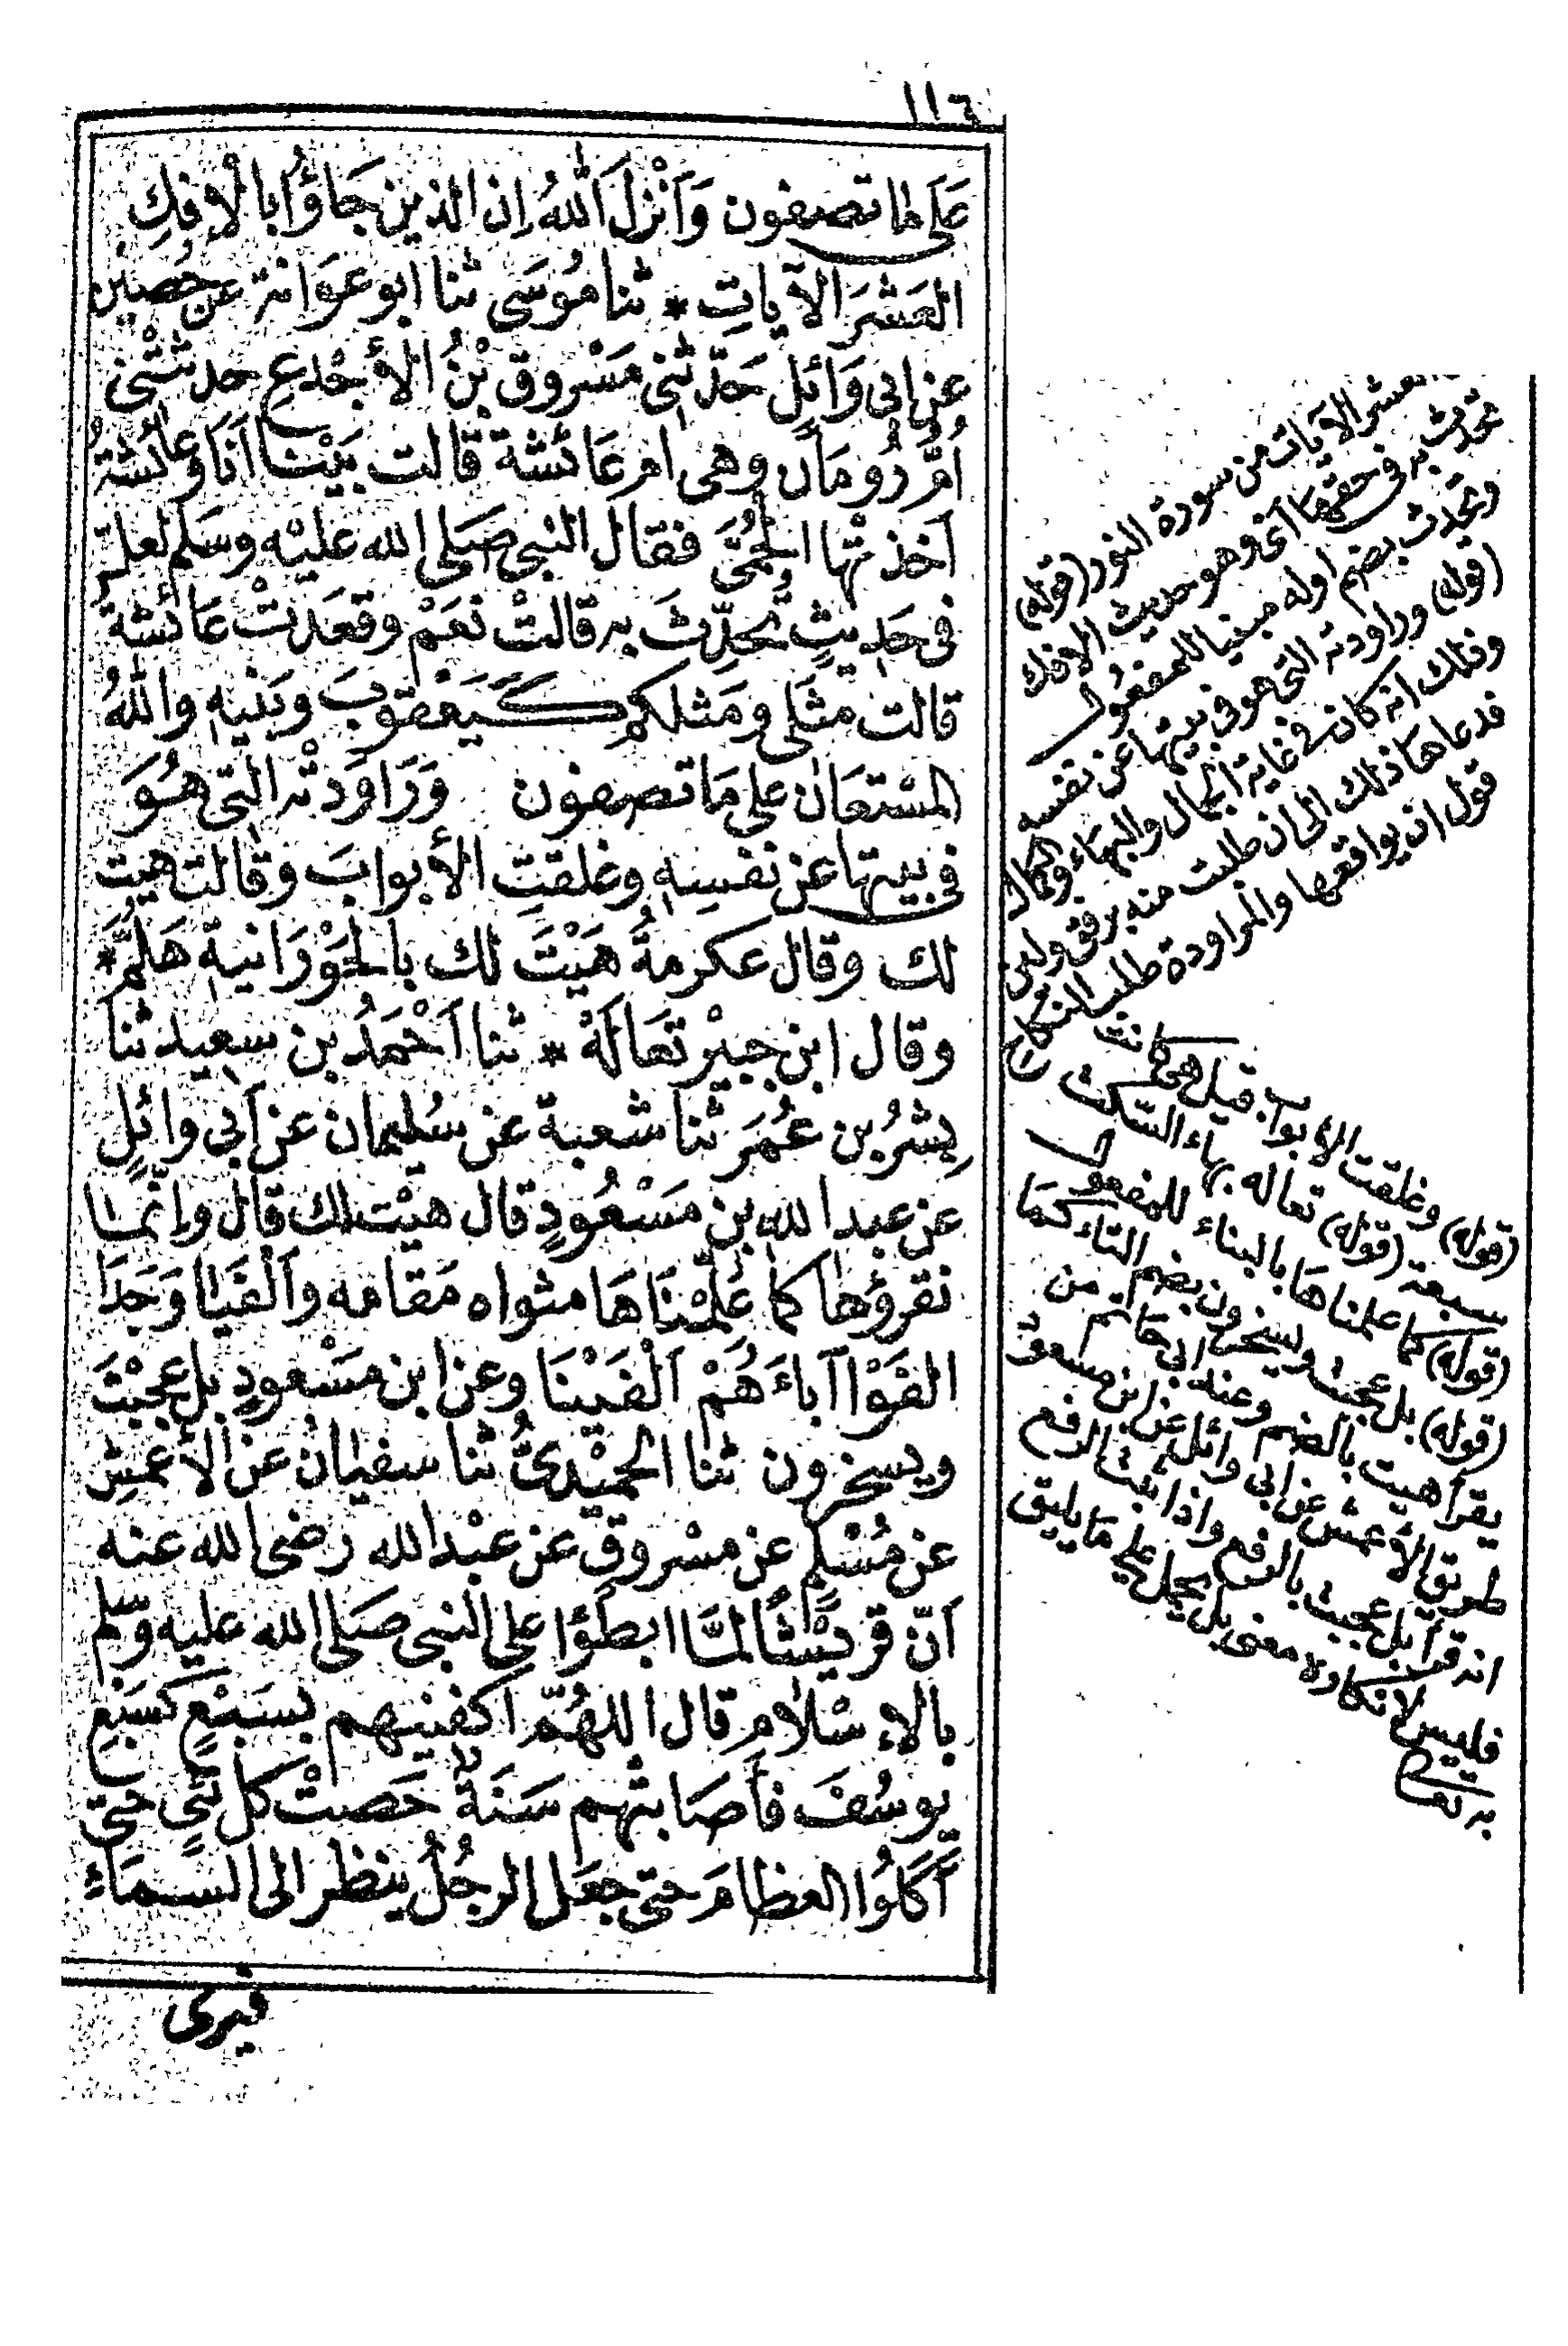 ١١٦
عَلَى ما تصفون وَاَنْزَلَ اَللّٰهُ اِن الذين جَاؤُا بالْاِفكِ
العَشْرَ الآياتِ * ثنا مُوسَى ثنا ابو عَوَانة عن حُصين
عن ابى وَائِلٍ حَدّثنى مَسْروق بْنُ الأجْدعِ حدثتْنى
اُمُّ رُومَان وهى ام عَائشة قالت بَيْنا اَنَا وعائشةُ
اَخذتْها الحُمَّى فقال النبى صَلى الله عليْه وسَلم لعلّ
فى حَديثٍ تُحدِّثَ به قالتْ نعَمْ وقعَدتْ عَائشةُ
قالت مثَلى ومَثلكم كَيَعَقوبَ وبَنيهِ واللّٰهُ
المسْتعَان على مَا تصفون وَرَاوَدتْه التى هُوَ
فى بيتها عن نفسِهِ وغلقتِ الأبوابَ وقالت هيتَ
لك وقال عكرمةُ هَيْتَ لك بالحَوْرَانيةِ هَلُمَّ *
وقال ابن جبيْر تعَالَهْ * ثنا اَحْمَدُ بن سعِيد ثنا
بِشرُ بن عُمَرَ ثنا شعبة عن سُليمان عن اَبى وائِلٍ
عن عبد الله بن مَسْعُودٍ قال هيْت لك قال وانّما
نقروُها كما عُلِّمْنَاهَا مثواه مَقامه واَلْفَيَا وَجَدَا
الفَوْا آباءَهُمْ اَلْفَيْنَا وعن ابن مَسْعودٍ بل عجبْتَ
ويسخرون ثنا الحميْدىُّ ثنا سفيانُ عن الأعمشِ
عن مُسْلمٍ عن مسْروقٍ عن عبْد الله رضى الله عنه
اَنّ قريْشًا لمّا ابطَؤا على النبى صَلى الله عليه وسّلم
بالاِسْلامِ قال اللهُمّ اكفنيهم بسَبْعٍ كسَبْعِ
يوسُفَ فأصَابتْهم سَنَةٌ حَصتْ كل شىٍ حتى
اَكَلوُا العظامَ حتى جعَل الرجُلُ ينظر الى السمَاءِ
فيرى
العشر الآيات من سورة النور (قوله)
تحدث به فى حقها وهو حديث الافك
وتحدث بضم اوله مبنيا للمفعول
(قوله) وراودته التى هو فى بيتها عن نفسه
وذلك انه كان فى غاية الجمال والبهاء والكمال
فدعاها ذلك الى ان طلبت منه برفق ولين
قول ان يواقعها والمراودة طلب النكاح
(قوله) وغلقت الأبواب قيل هى كانت
سبعة (قوله) تعاله بهاء السكت
(قوله) كما علمناها بالبناء للمفعول
(قوله) بل عجبت ويسخرون بضم التاء كما
يقرأ هيت بالضم وعند ابى حاتم من
طريق الأعمش عن ابى وائل عن ابن مسعود
انه قرأ بل عجبت بالرفع واذا ثبت الرفع
فليس لانكاره معنى بل يحمل على مَا يليق
به تعالى